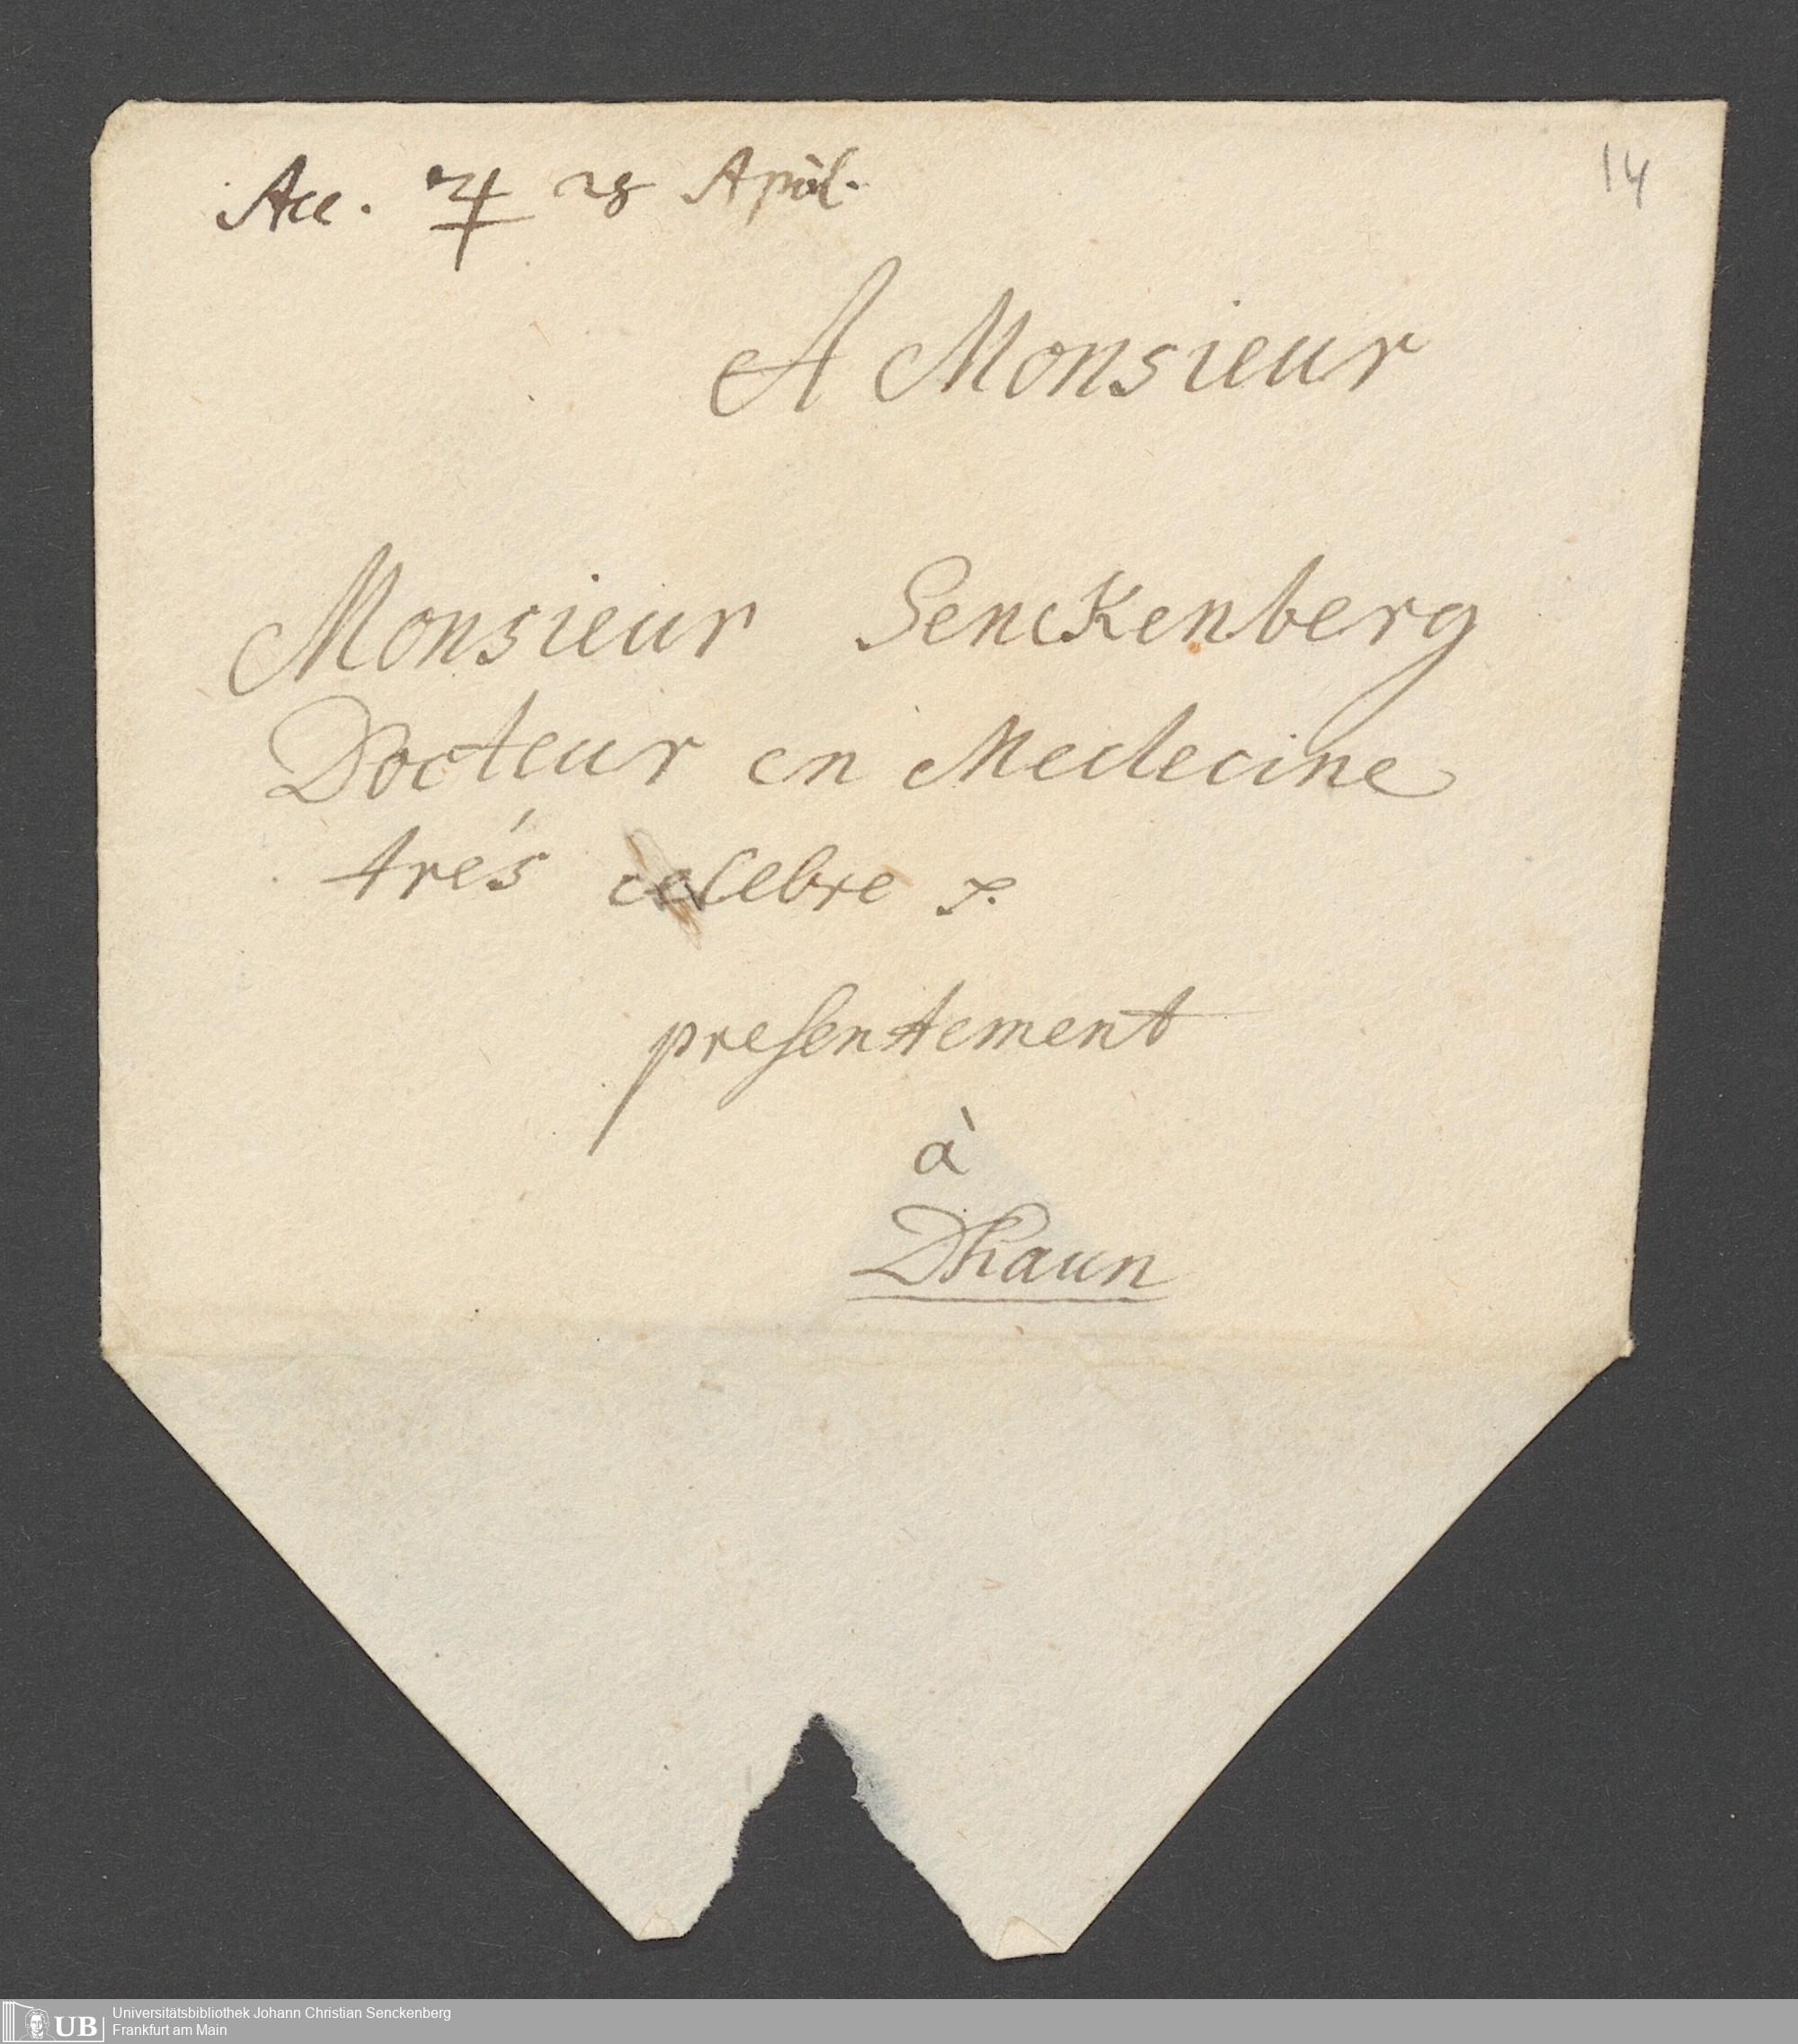 Acc. ♃ 28 April.
14
A Monsieur
Monsieur Senckenberg
Docteur en Medecine
trés celebre
presentement
à
Dhaun
UB
Universitätsbibliothek Johann Christian Senckenberg
Frankfurt am Main